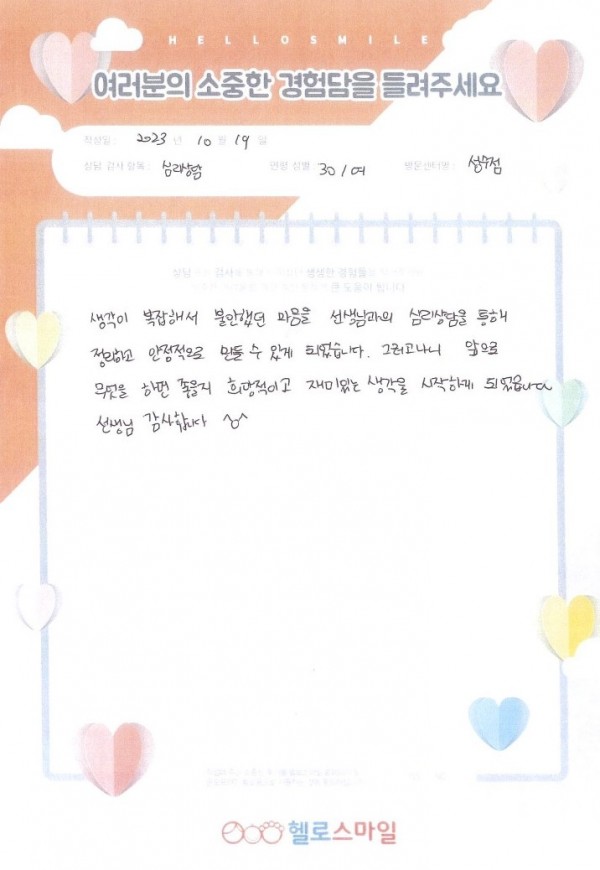 HELLOSMILE
여러분의 소중한 경험담을 들려주세요
작성일 : 2023 년 10 월 19 일
상담 검사 항목 : 심리상담 연령 성별 : 30 / 여 방문센터명 : 성수점
상담 감사 생생한 경험들
큰 도움이 됩니다
생각이 복잡해서 불안했던 마음을 선생님과의 심리상담을 통해
정리하고 안정적으로 만들 수 있게 되었습니다. 그러고나니 앞으로
무엇을 하면 좋을지 희망적이고 재미있는 생각을 시작하게 되었습니다
선생님 감사합니다 ^o^
헬로스마일